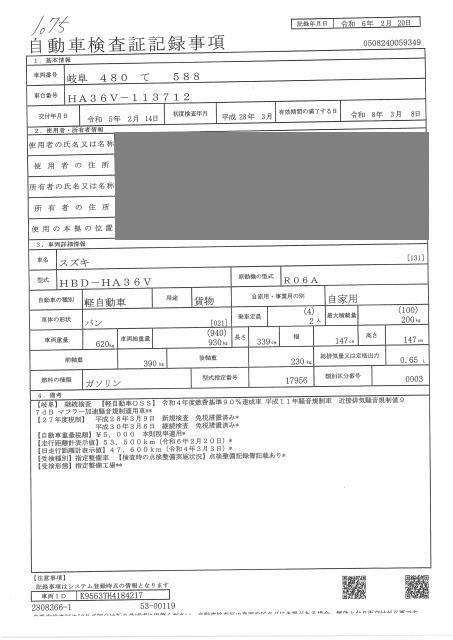 1.075
記録年月日 令和 6年 2月 20日
自動車検査証記録事項
0508240059349
1. 基本情報
車両番号 岐阜 480 て 588
車台番号 HA36V-113712
交付年月日 令和 5年 2月 14日 初度検査年月 平成 28年 3月 有効期間の満了する日 令和 8年 3月 8日
2. 使用者・所有者情報
使用者の氏名又は名称
使用者の住所
所有者の氏名又は名称
所有者の住所
使用の本拠の位置
3. 車両詳細情報
車名 スズキ [131]
型式 HBD-HA36V 原動機の型式 R06A
自動車の種別 軽自動車 用途 貨物 自家用・事業用の別 自家用
車体の形状 バン [021] 乗車定員 (4) 2人 最大積載量 (100) 200kg
車両重量 620kg 車両総重量 (940) 930kg 長さ 339cm 幅 147cm 高さ 147cm
前前軸重 390kg 後後軸重 230kg 総排気量又は定格出力 0.65 L
燃料の種類 ガソリン 型式指定番号 17956 類別区分番号 0003
4. 備考
【岐阜】 継続検査 【軽自動車OSS】 令和4年度燃費基準90%達成車 平成11年騒音規制車 近接排気騒音規制値9
7dB マフラー加速騒音規制適用車**
【27年度税制】 平成28年3月9日 新規検査 免税措置済み*
平成30年3月6日 継続検査 免税措置済み*
【自動車重量税額】¥5,000 本則税率適用*
【走行距離計表示値】53,500km(令和6年2月20日)*
【旧走行距離計表示値】47,600km(令和4年3月3日)*
【受検種別】指定整備車 【検査時の点検整備実施状況】点検整備記録簿記載あり*
【受検形態】指定整備工場**
【注意事項】
記録事項はシステム登録時点の情報となります
車両ID K9563TH4184217
2808366-1 53-00119